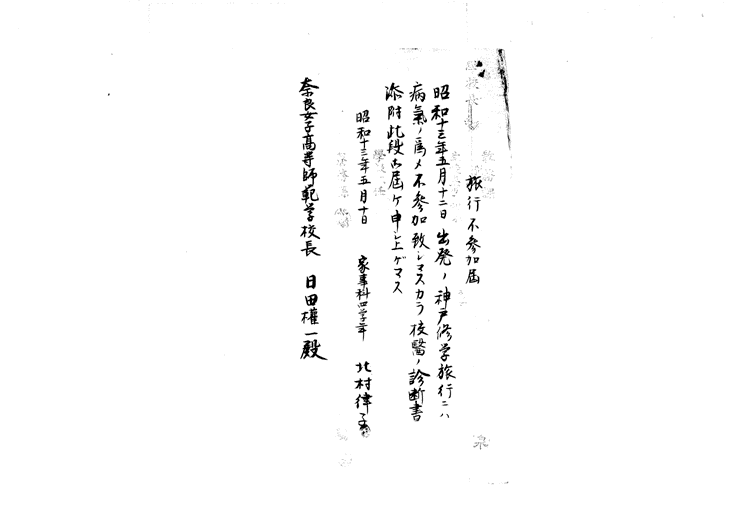 旅行不参加届
昭和十三年五月十二日出発ノ神戸修学旅行ニハ
病氣ノ爲メ不参加致シマスカラ校醫ノ診断書
添附此段御届ケ申シ上ゲマス
昭和十三年五月十日
家事科四学年 北村律子
奈良女子高等師範学校長 日田權一殿